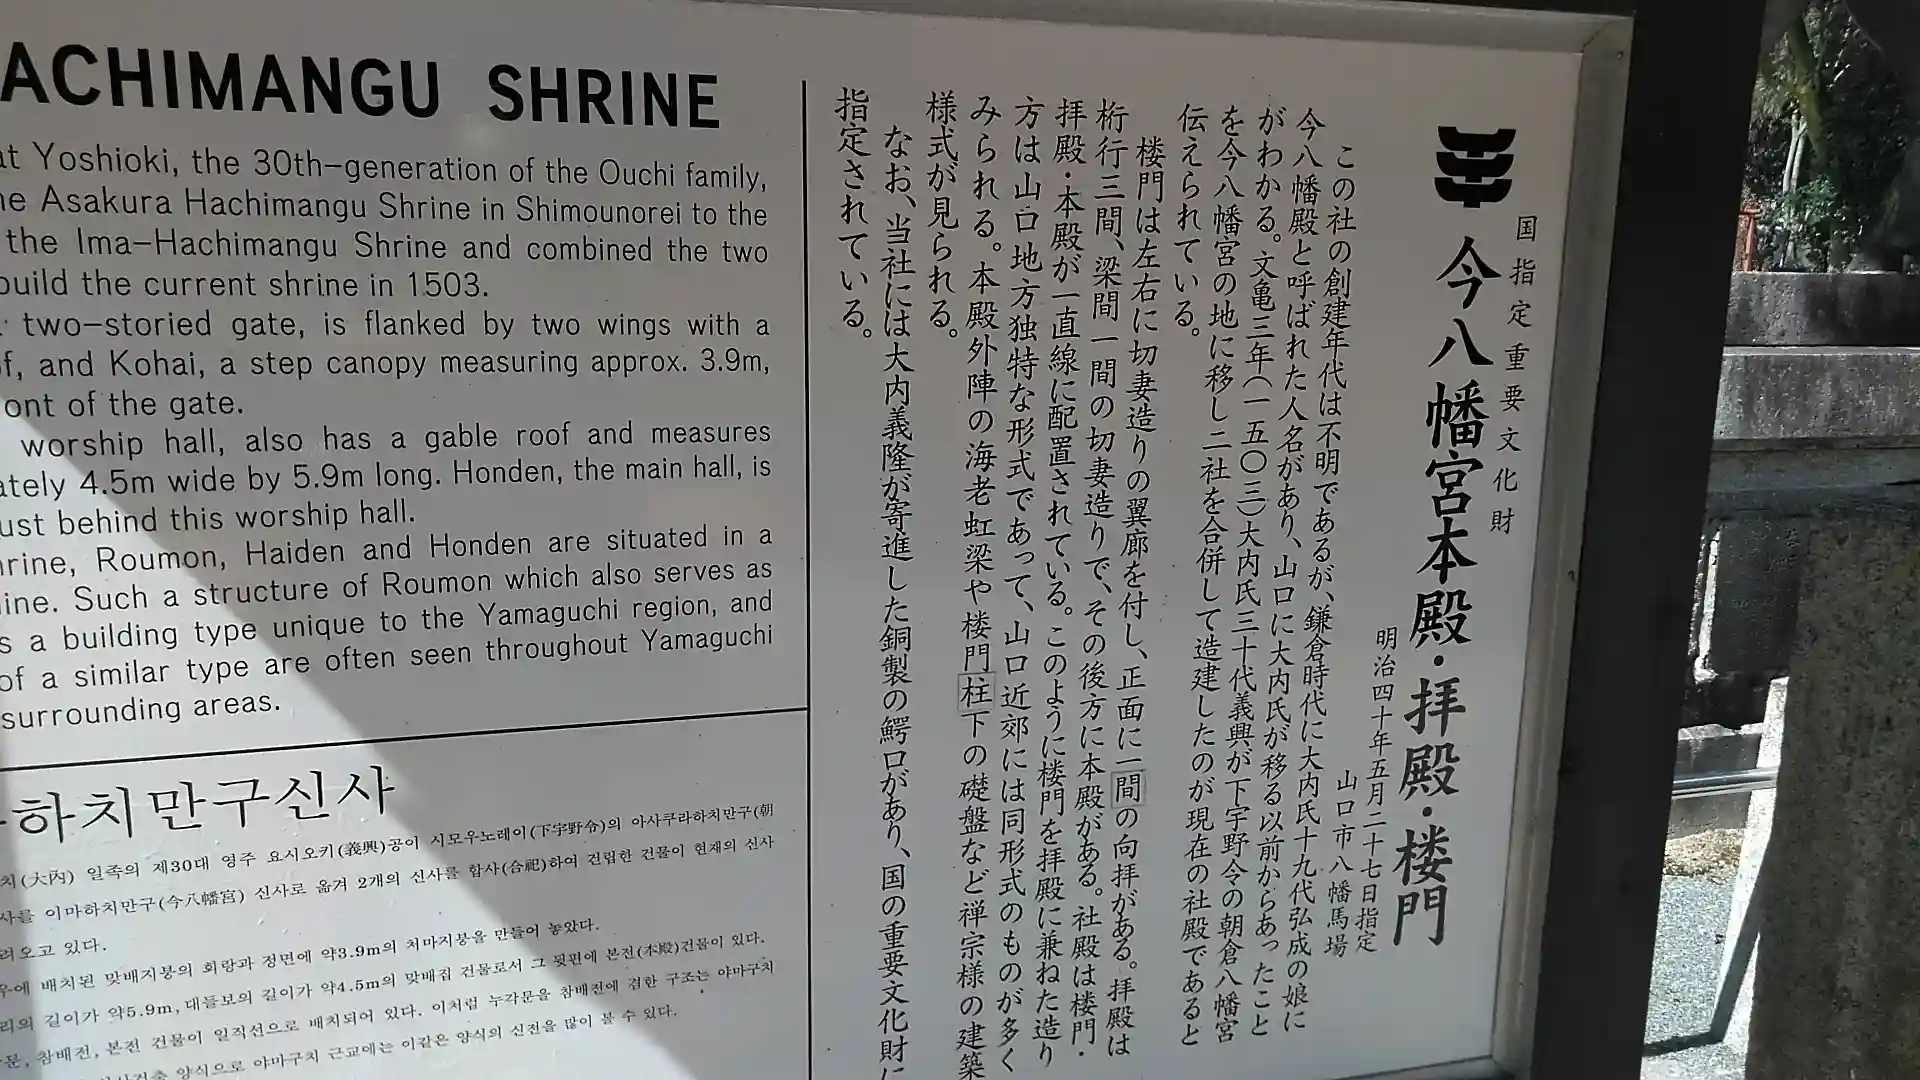 国指定重要文化財
今八幡宮本殿・拝殿・楼門
明治四十年五月二十七日指定
山口市八幡馬場
この社の創建年代は不明であるが、鎌倉時代に大内氏十九代弘成の娘に
今八幡殿と呼ばれた人名があり、山口に大内氏が移る以前からあったこと
がわかる。文亀三年(一五〇三)大内氏三十代義興が下宇野令の朝倉八幡宮
を今八幡宮の地に移し二社を合併して造建したのが現在の社殿であると
伝えられている。
楼門は左右に切妻造りの翼廊を付し、正面に一間の向拝がある。拝殿は
桁行三間、梁間一間の切妻造りで、その後方に本殿がある。社殿は楼門・
拝殿・本殿が一直線に配置されている。このように楼門を拝殿に兼ねた造り
方は山口地方独特な形式であって、山口近郊には同形式のものが多く
みられる。本殿外陣の海老虹梁や楼門柱下の礎盤など禅宗様の建築
様式が見られる。
なお、当社には大内義隆が寄進した銅製の鰐口があり、国の重要文化財に
指定されている。
ACHIMANGU SHRINE
at Yoshioki, the 30th-generation of the Ouchi family,
Asakura Hachimangu Shrine in Shimounorei to the
the Ima-Hachimangu Shrine and combined the two
build the current shrine in 1503.
two-storied gate, is flanked by two wings with a
and Kohai, a step canopy measuring approx. 3.9m,
ont of the gate.
worship hall, also has a gable roof and measures
ately 4.5m wide by 5.9m long. Honden, the main hall, is
ust behind this worship hall.
hrine, Roumon, Haiden and Honden are situated in a
ine. Such a structure of Roumon which also serves as
s a building type unique to the Yamaguchi region, and
of a similar type are often seen throughout Yamaguchi
surrounding areas.
하치만구신사
치(大內) 일족의 제30대 영주 요시오키(義興)공이 시모우노레이(下宇野令)의 아사쿠라하치만구(朝
사를 이마하치만구(今八幡宮) 신사로 옮겨 2개의 신사를 합사(合祀)하여 건립한 건물이 현재의 신사
려오고 있다.
우에 배치된 맞배지붕의 회랑과 정면에 약3.9m의 처마지붕을 만들어 놓았다.
리의 길이가 약5.9m, 대들보의 길이가 약4.5m의 맞배집 건물로서 그 뒷편에 본전(本殿)건물이 있다.
문, 참배전, 본전 건물이 일직선으로 배치되어 있다. 이처럼 누각문을 참배전에 겸한 구조는 야마구치
양식으로 야마구치 근교에는 이같은 양식의 신전을 많이 볼 수 있다.